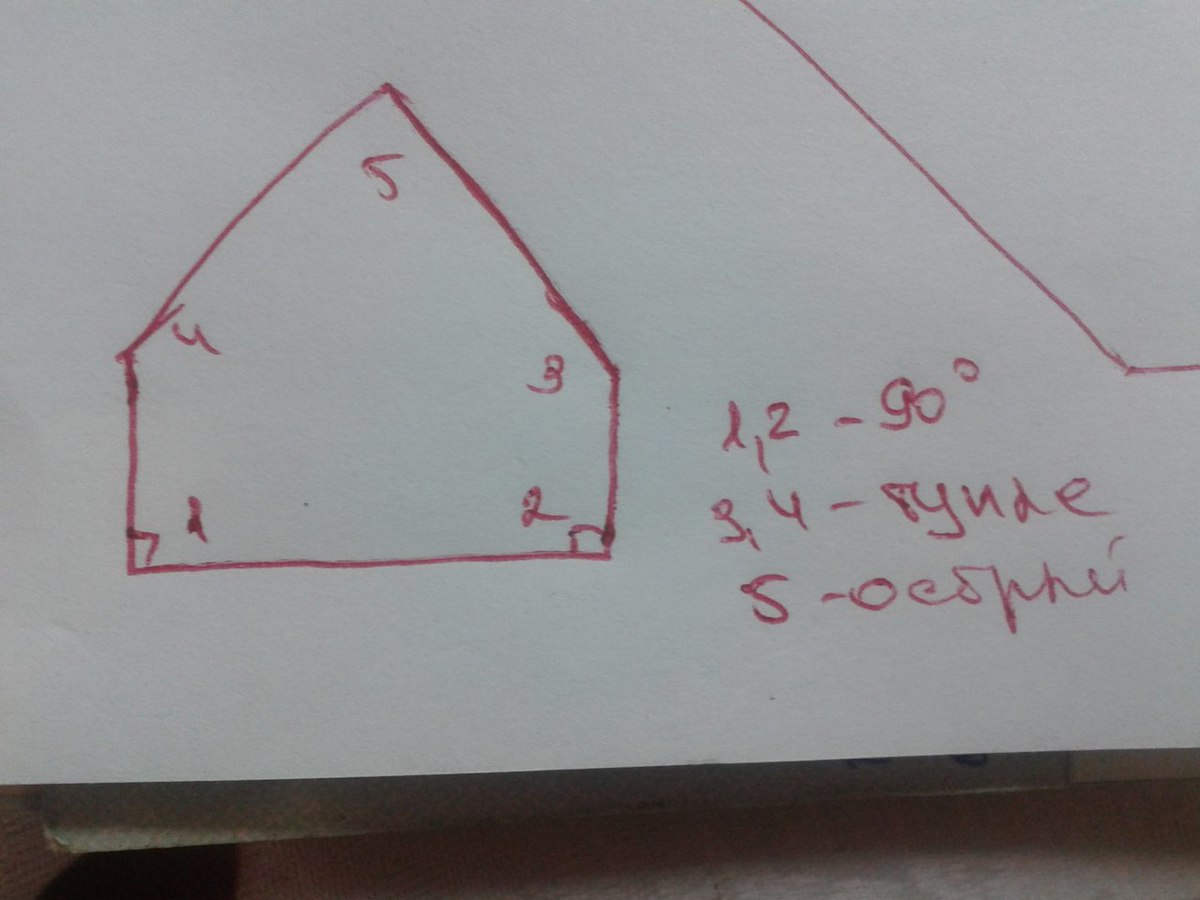 5
4
3
1
2
1,2 - 90°
3,4 - тупые
5 - острый